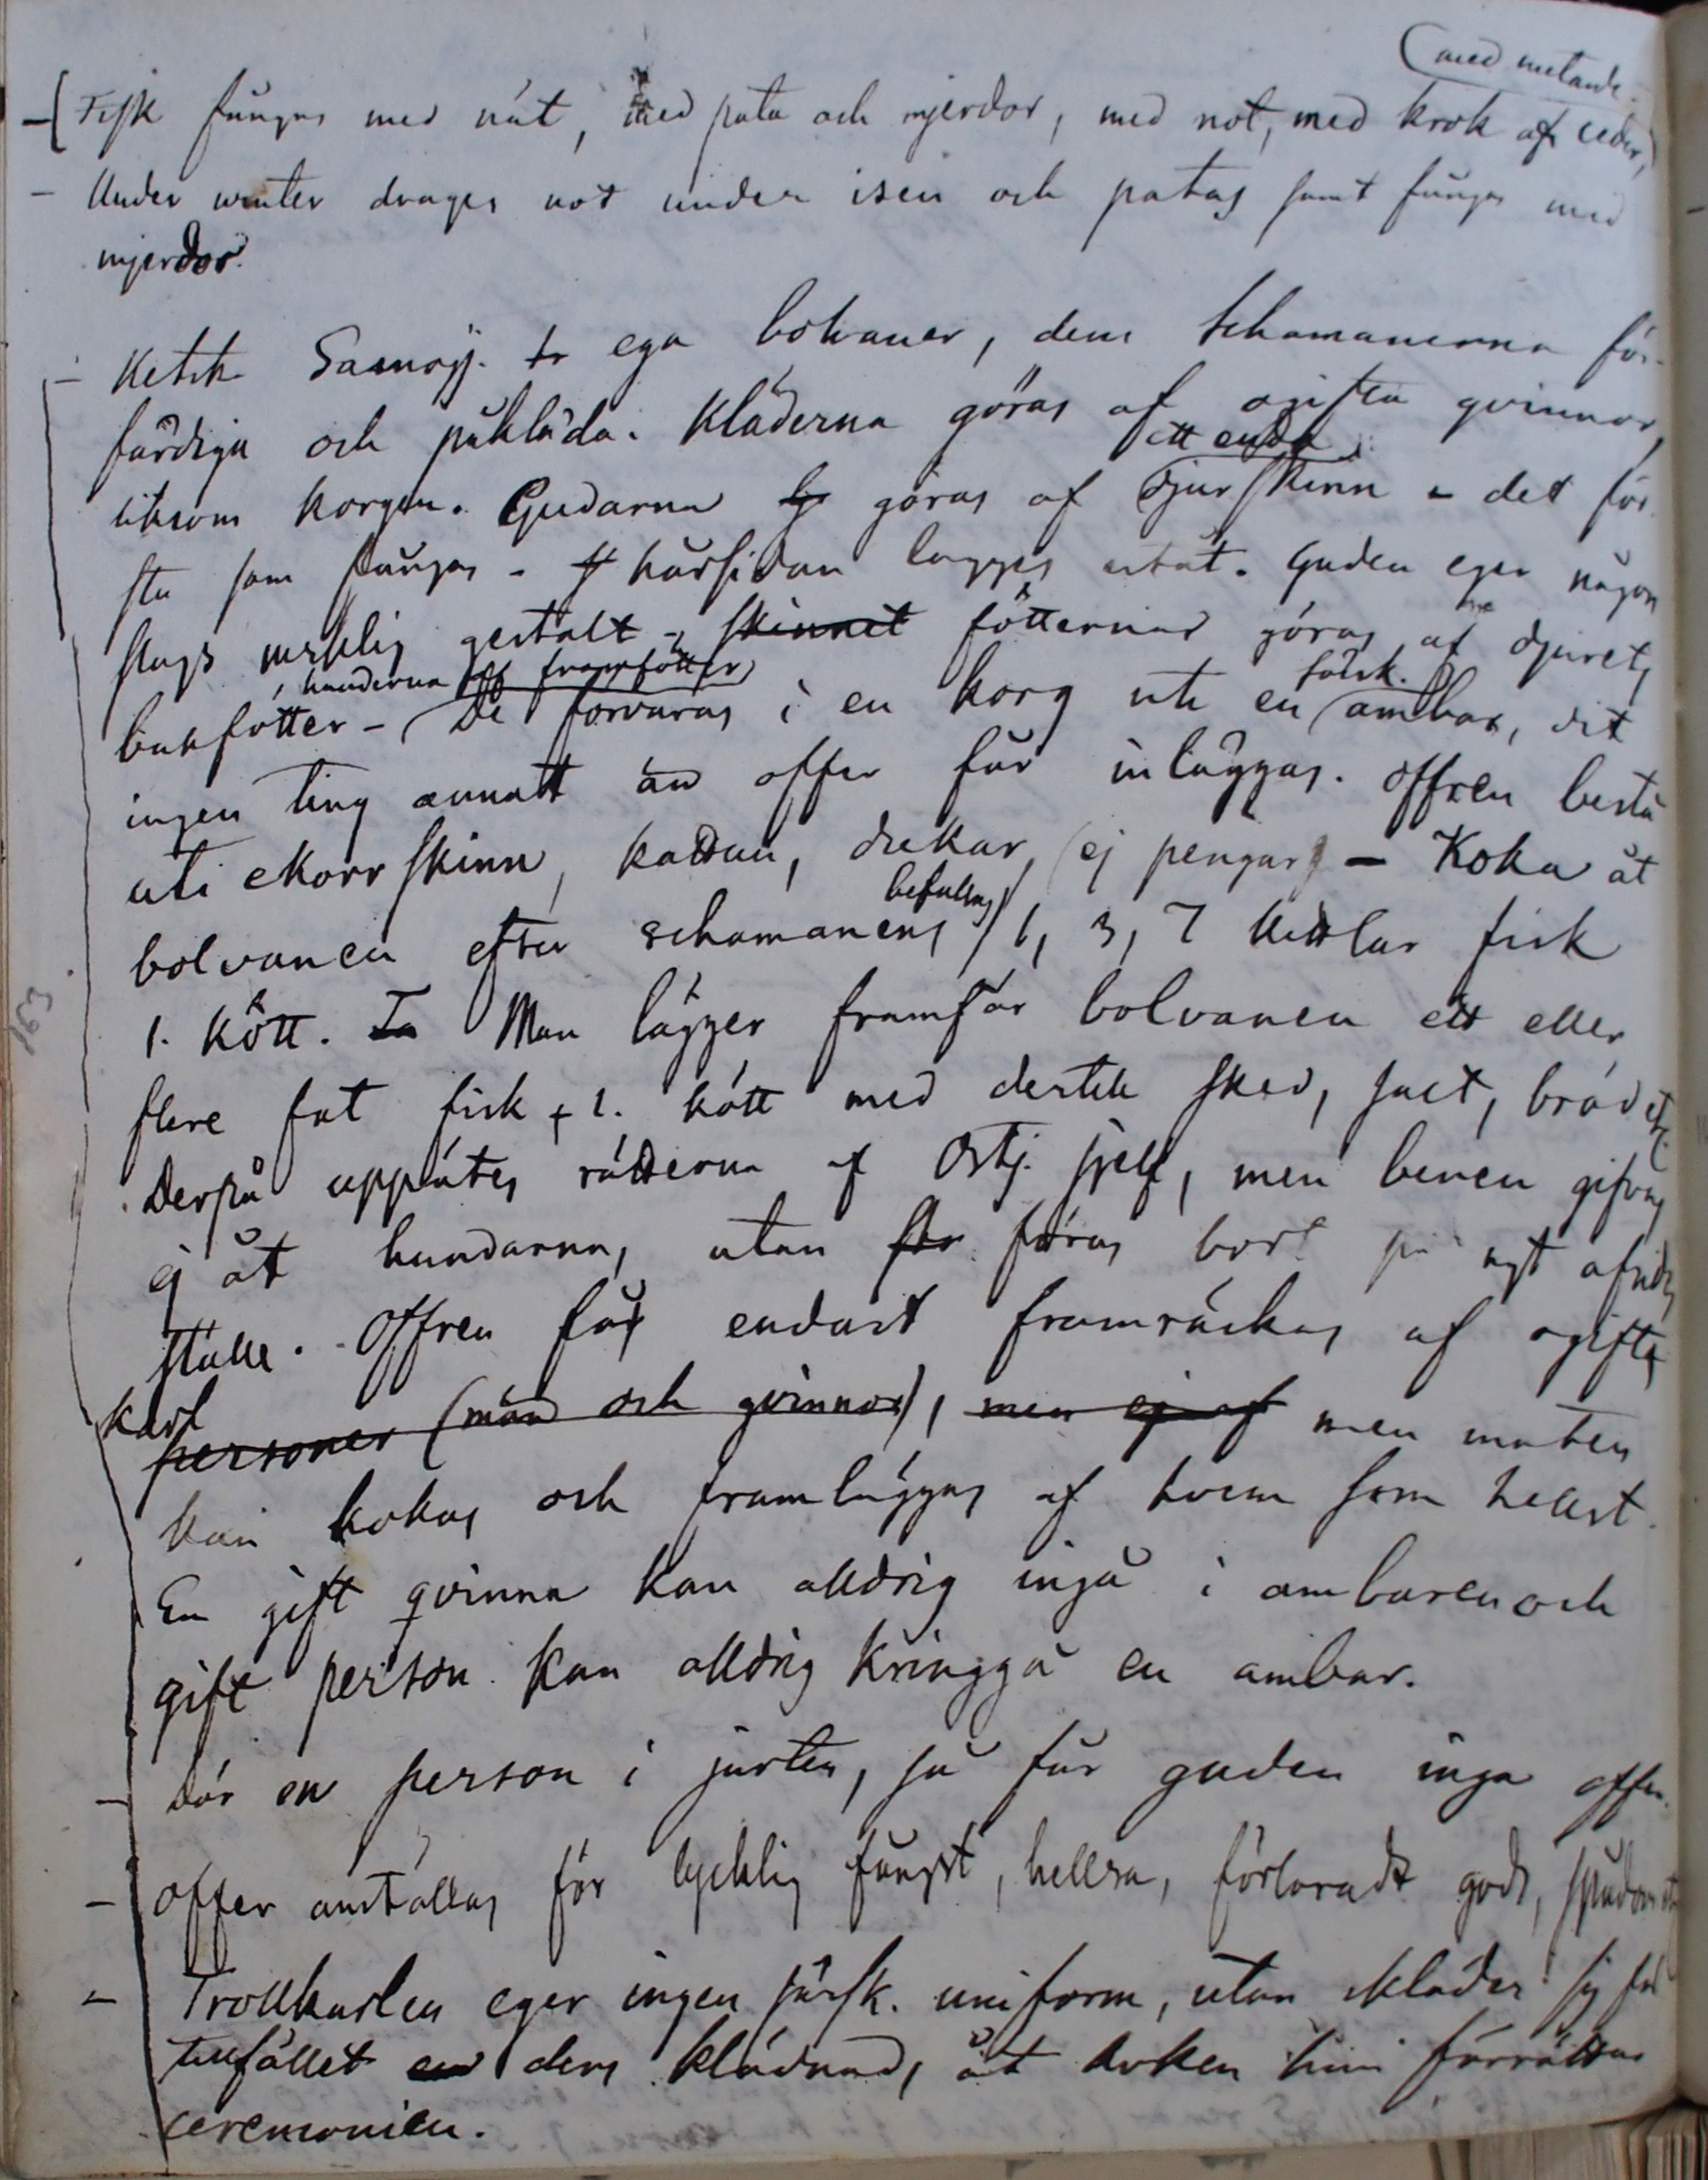 (med metande.
– [Fisk fångas med nät, med pata och mjerdor, med not, med krok af ceder,)
– Under winter drages not under isen och patas samt fångas med
mjerdor.
– Ketsk Samoj. ega bolvaner, dem schamanerna för-
färdiga och påkläda. Kläderna göras af ogifta qvinnor,
liksom korgen. Gudarna göras af
ett enda
djurskinn – det för
sta som fångas – hårsidan lägges utåt. Guden eger någon
slags mensklig gestalt – skinnet fötterna göras af djurets
, händerna af framfötter
bakfötter – De förvaras i en korg uti en
särsk.
ambar, dit
ingen ting annatt än offer får inläggas. Offren bestå
uti ekorrskinn, kattun, dukar, (ej pengar) – Koka åt
bolvanen efter schamanens
befallng
1, 3, 7 kittlar fisk
l. kött. Man lägger framför bolvanen ett eller
flere fat fisk l. kött med dertill sked, salt, bröd etc.
Derpå uppätes rätterna af Ostj. sjelf, men benen gifvas
ej åt hundarna, utan föras bort på ngt afsides
ställe. Offren får endast framräckas af ogifta
karl
personer (män och qvinnor), men ej af men maten
kan kokas och framläggas af hvem som helst.
En gift qvinna kan alldrig ingå i ambaren och
gift person kan alldrig kringgå en ambar.
– Dör en person i jurten, så får guden inga offer.
– Offer anställas för lycklig fångst, hellsa, förloradt gods, spådom etc
– Trollkarlen eger ingen särsk. uniform, utan kläder sig för
tillfället i dens klädnad, åt hvilken han förrättar
ceremonien.
163